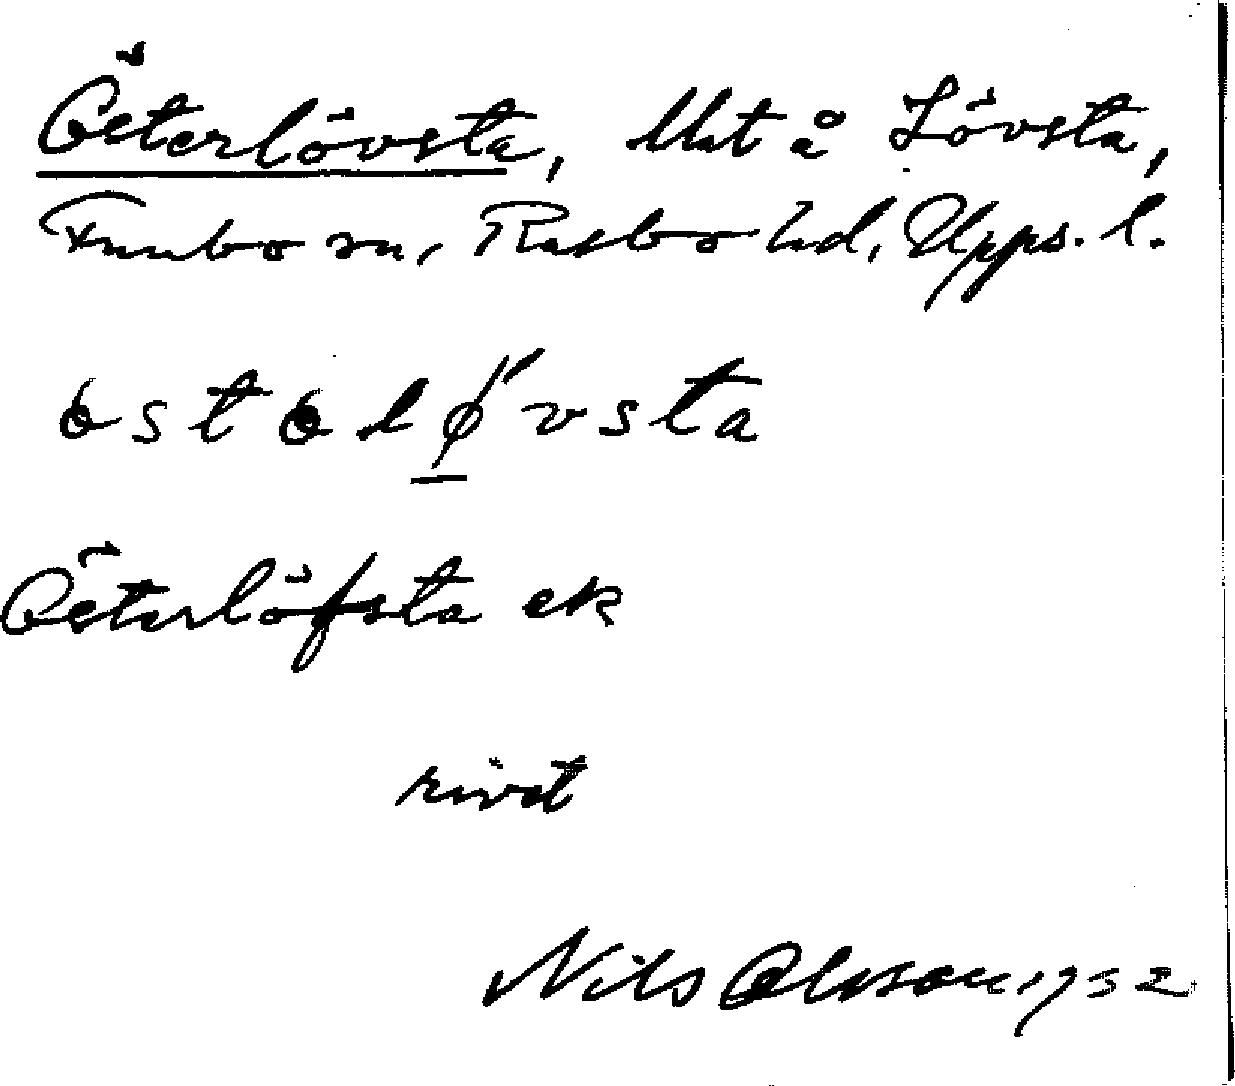 Österlövsta, lht å Lövsta,
Funbo sn, Rasbo hd, Upps. l.
östəlø̱´vsta
Österlöfsta ek
rivet
Nils Olsson 1932